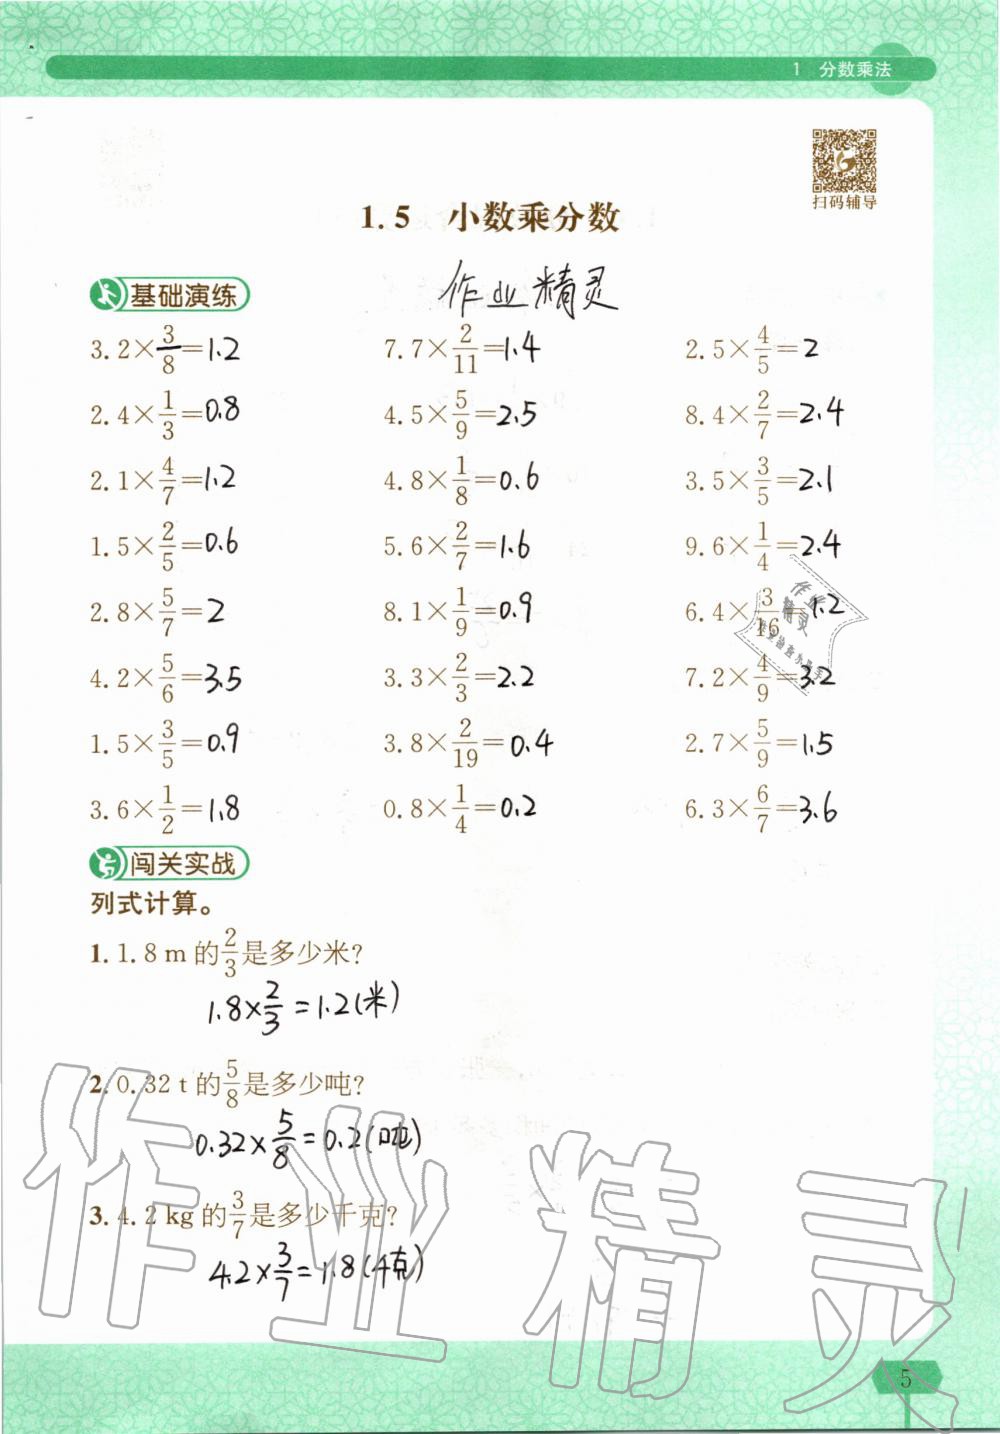 1 分数乘法
扫码辅导
1.5 小数乘分数
基础演练
作业精灵
3.2×3/8=1.2 7.7×2/11=1.4 2.5×4/5=2
2.4×1/3=0.8 4.5×5/9=2.5 8.4×2/7=2.4
2.1×4/7=1.2 4.8×1/8=0.6 3.5×3/5=2.1
1.5×2/5=0.6 5.6×2/7=1.6 9.6×1/4=2.4
2.8×5/7=2 8.1×1/9=0.9 6.4×3/16=1.2
4.2×5/6=3.5 3.3×2/3=2.2 7.2×4/9=3.2
1.5×3/5=0.9 3.8×2/19=0.4 2.7×5/9=1.5
3.6×1/2=1.8 0.8×1/4=0.2 6.3×6/7=3.6
作业
精灵
闯关实战
列式计算。
1. 1.8 m 的2/3是多少米?
1.8×2/3=1.2(米)
2. 0.32 t 的5/8是多少吨?
0.32×5/8=0.2(吨)
3. 4.2 kg 的3/7是多少千克?
4.2×3/7=1.8(千克)
作业精灵
5